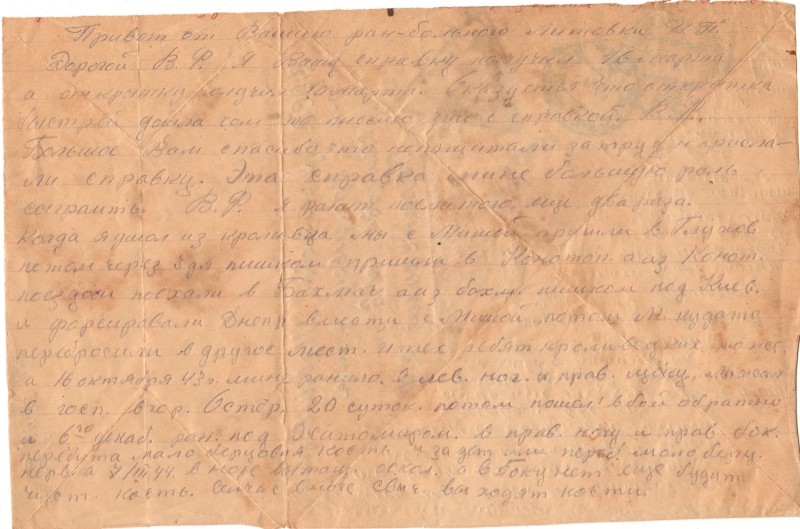 Привет от Вашего ран-больного Литовки И.П.
Дорогой В.Ф. Я Вашу справку получил 16 марта
а открытку получил 10 марта. Оказуется что открытка
быстрей дошла чем то письмо что с справкой. В.Ф.
Большое Вам спасибо что непощитали за труд и присла-
ли справку. Эта справка мине большую роль
сыграить. В.Ф. я ранит после того ище два раза.
Когда я ушол из кролевца, мы с Мишой пришли в Глухов
потом через 3 дн пишком пришли в Конотоп. а из Конот.
поездом поехали в Бахмач а из бахм. пишком под Киев.
и форсировали Днепр вмисти с Мишой, потом М. кудато
перебросили в другое мест. и тех ребят кроливецких тоже
а 16 октября 43 г. мине ранило. в лев. ног. и прав. щёку, лижал
в госп. в гор. Остёр 20 суток. потом пошол в бой обратно
и 6го декаб. ран. под Житомиром. в прав. ногу и прав бок.
перебута мало берцовая кость и задет или переб. малоберц.
нерв. а 7/III 44. в ноге вытащ. оскол. а в боку нет ище будут
чист. кость. Сейчас в ноге свищ. выходят кости.